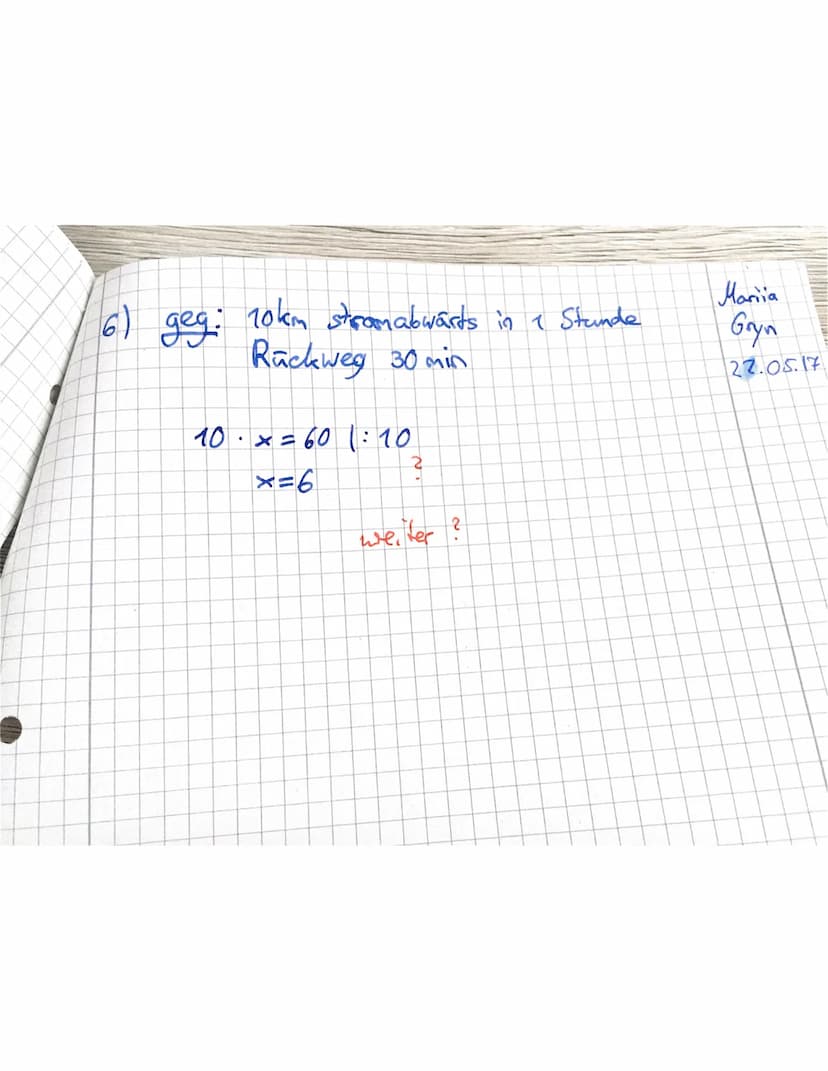 6) geg: 10km stromabwärts in 1 Stunde
Rückweg 30 min
Mariia
Gryn
22.05.17
10 · x = 60 |: 10
x=6
?
weiter ?